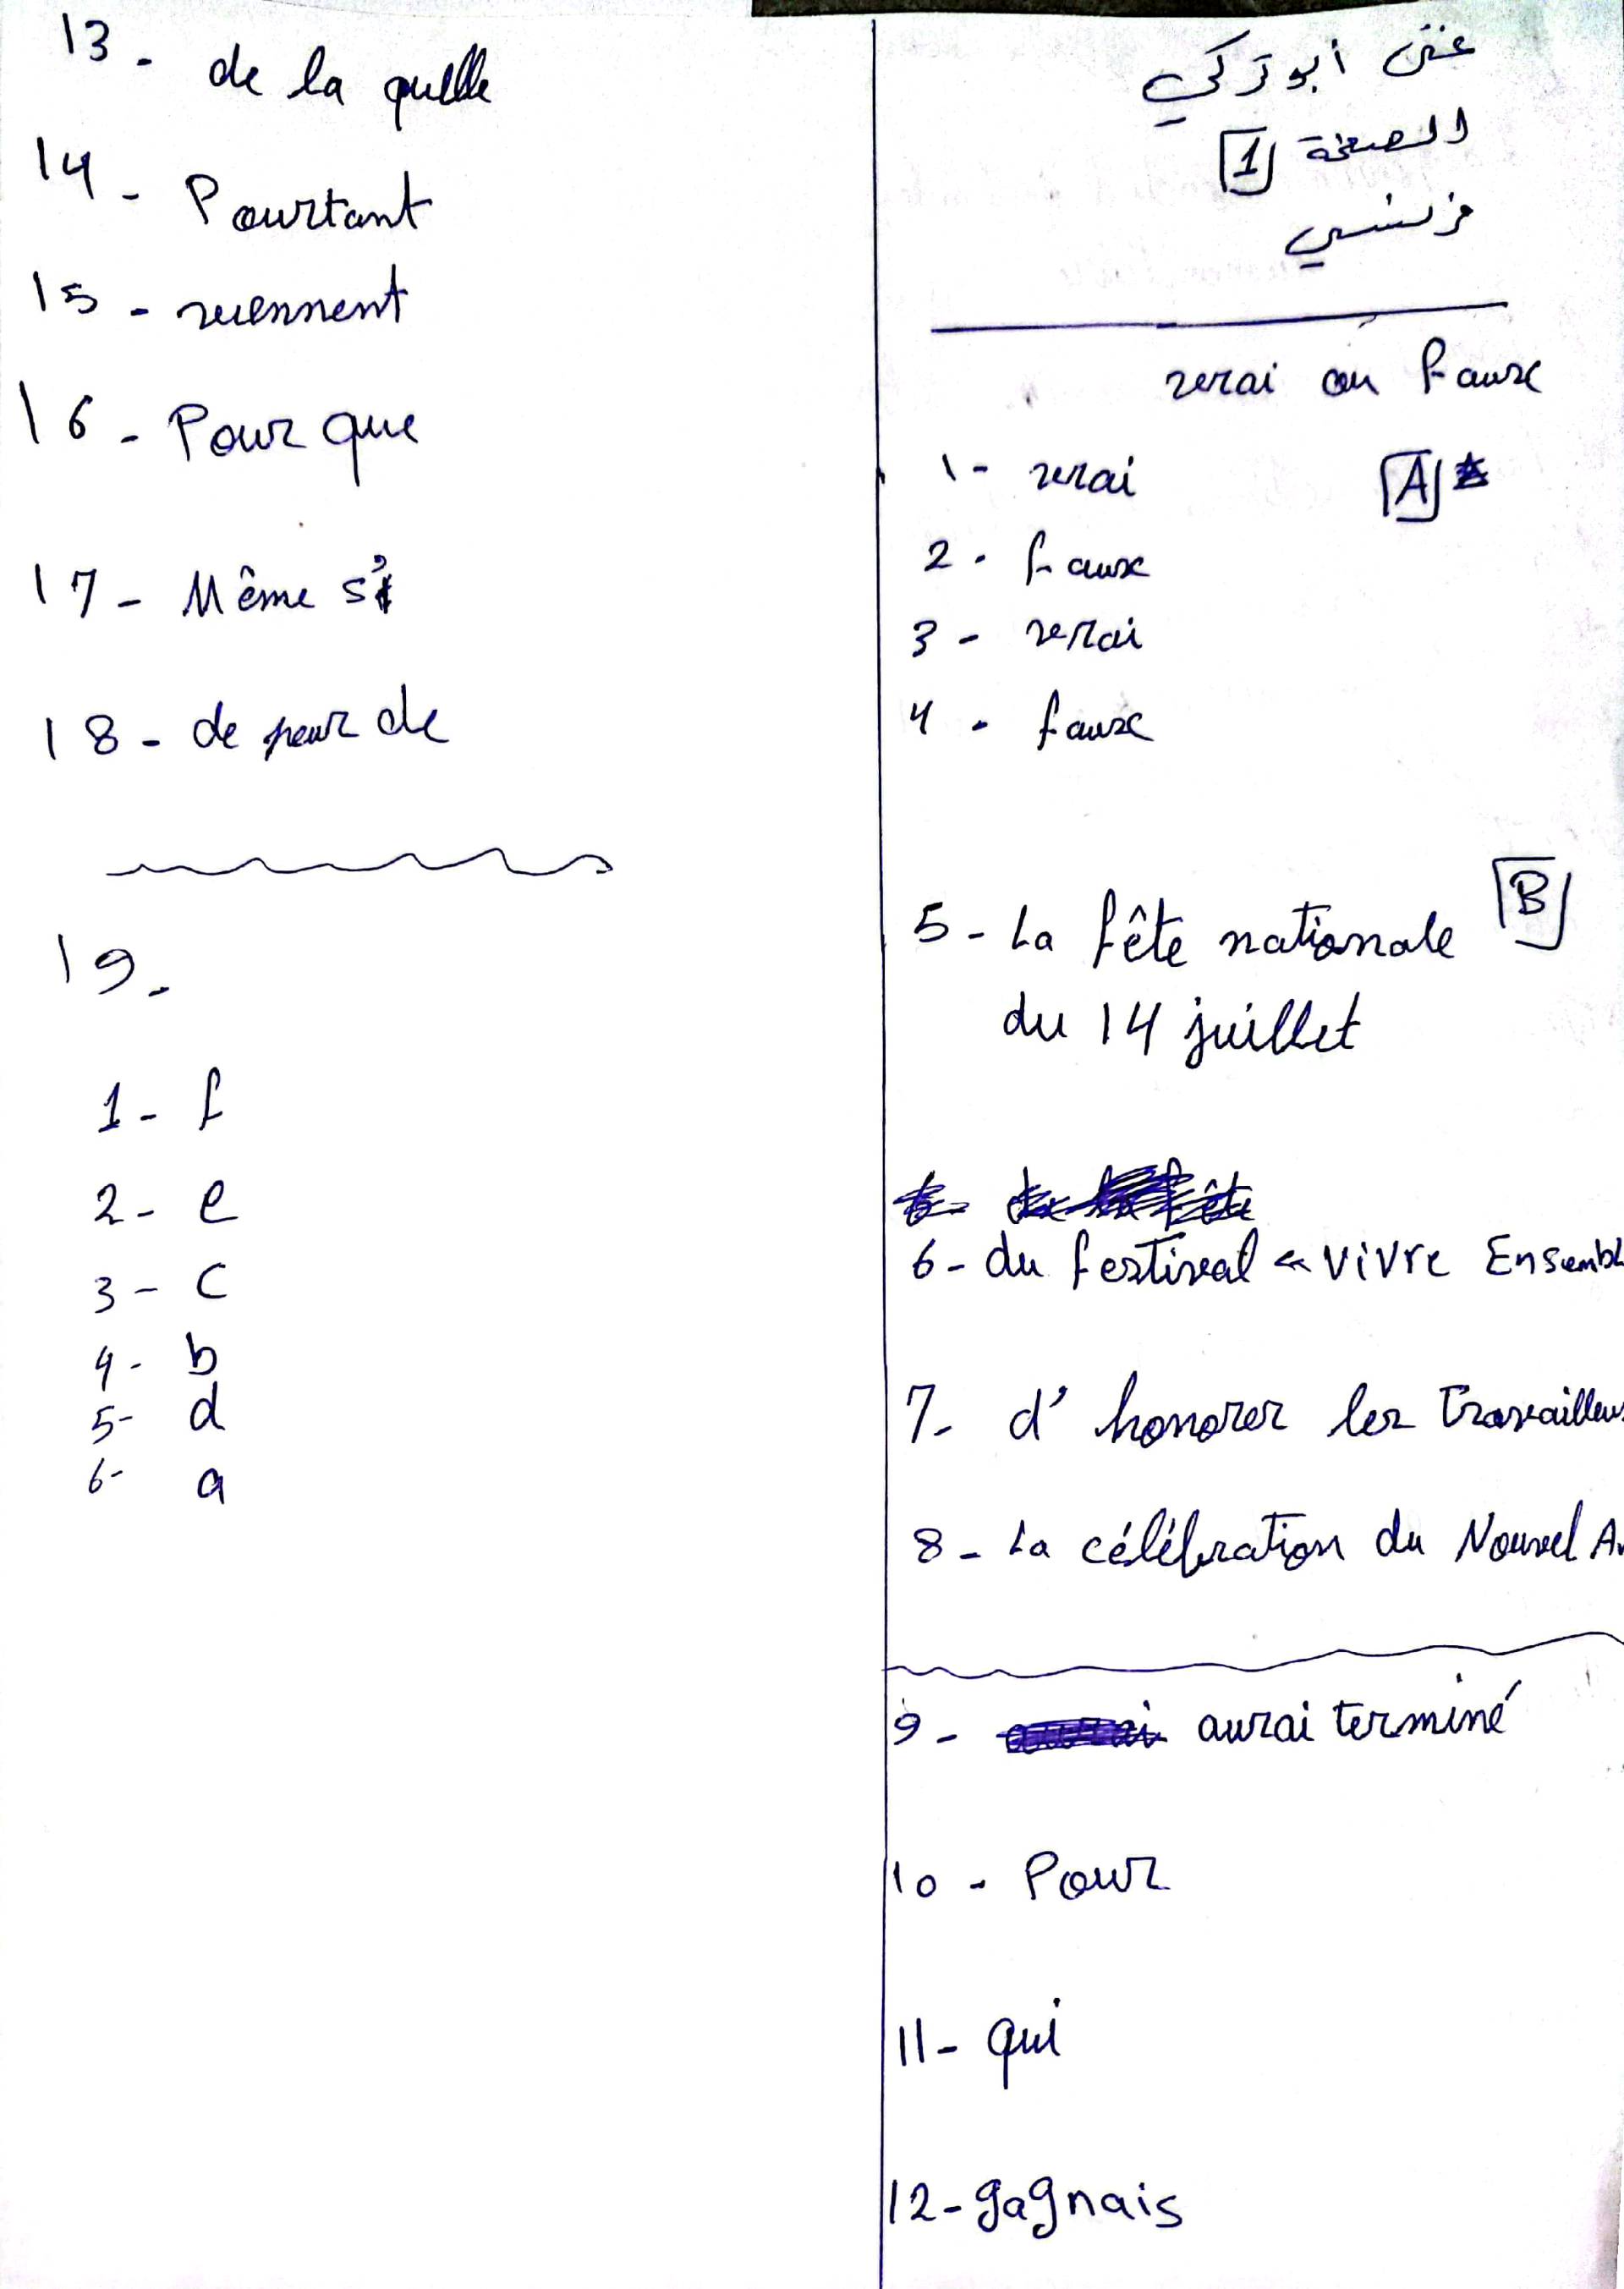 غنى أبو تركي
الصفحة 1
فرنسي
vrai ou faux
A
1- vrai
2- faux
3- vrai
4- faux
B
5- La fête nationale
du 14 juillet
6- du festival « Vivre Ensembl
7- d'honorer les Travailleurs
8- La célébration du Nouvel A
9- aurai terminé
10- Pour
11- qui
12- gagnais
13- de la quelle
14- Pourtant
15- viennent
16- Pour que
17- Même s'
18- de peur de
19-
1- f
2- e
3- c
4- b
5- d
6- a